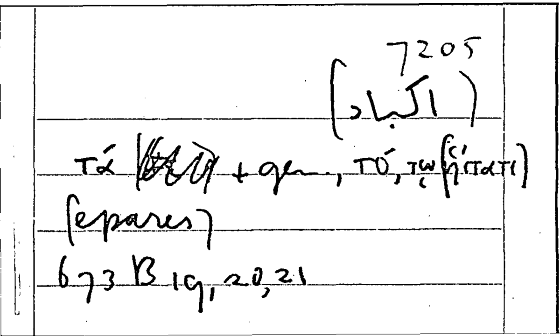 7205
(اكباد)
τά + gen., τό, τῳ (ἥπατι)
[epares]
673 B 19, 20, 21